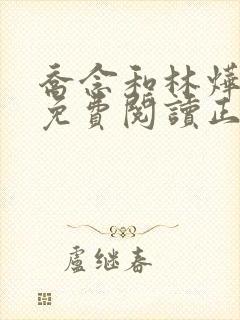 喬念和林燁
免費閱讀正
盧继春